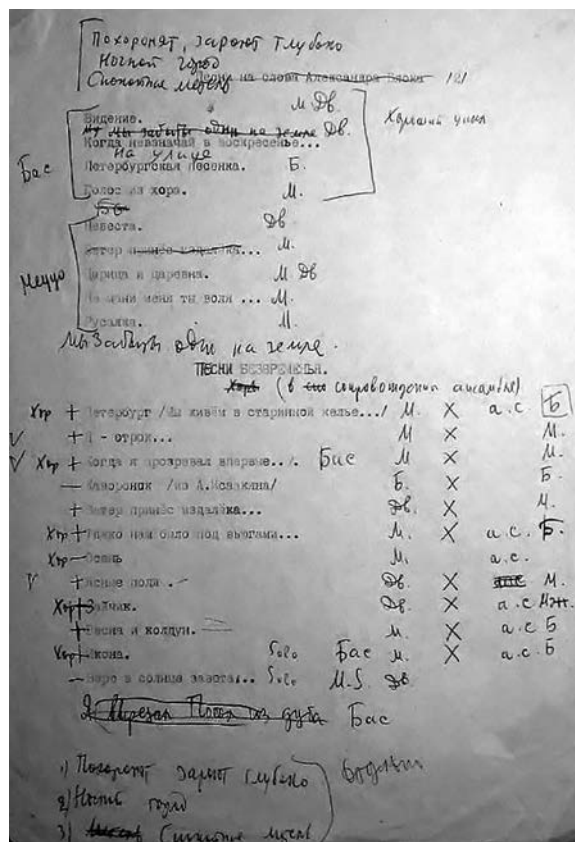 Похоронят, зароют глубоко
Ночной город
Песни на слова Александра Блока /2/
М Дв.
Видение.
мы забыты одни на земле Дв.
Хороший
Когда невзначай в воскресенье...
на улице
Бас
Петербургская песенка. Б.
Голос из хора. М.
Невеста. Дв
Ветер принёс издалёка... М.
Меццо
Царица и царевна. М Дв
Не мани меня ты воля ... М.
Русалка. М.
Мы забыты одни на земле.
ПЕСНИ БЕЗВРЕМЕНЬЯ.
Хоръ (в сопровождении ансамбля)
Хор + Петербург /Мы живём в старинной келье.../ М. X а.с Б
V + Я - отрок... М X М.
V Хор + Когда я прозревал впервые../. Бас М X М.
— Жаворонок /из А.Исаакяна/ Б. X Б.
+ Ветер принёс издалёка... Дв. X М.
Хор + Тяжко нам было под вьюгами... М. X а.с. Б.
Хор — Осень М. а.с.
V + Ясные поля .- Дв. X М.
Хор + Зайчик. Дв. X а.с
+ Весна и колдун. М. X а.с Б
Хор + Икона. Solo Бас М. X а.с. Б
— Верю в солнце завета... Solo M.S. Дв
2) из дуба Бас
1) Похоронят зароют глубоко
2) Ночной город
3)